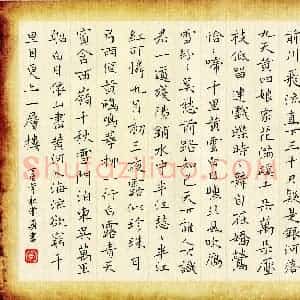 前川飛流直下三千尺疑是銀河落
九天黄四娘家花滿蹊千朵萬朵壓
枝低留連戲蝶時時舞自在嬌鶯
恰〻啼千里黄雲白日曛北風吹雁
雪紛〻莫愁前路知己天下誰人不識
君一道殘陽鋪水中半江瑟〻半江
紅可憐九月初三夜露似珍珠月
弓兩個黄鸝鳴翠柳一行白鷺青天
窗含西嶺千秋雪門泊東吳萬里
船白日依山盡黄河入海流欲窮千
里目更上一層樓
Shufaziliao.com